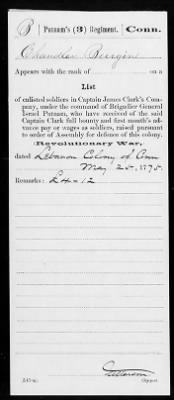 P | Putnam's (3) Regiment. | Conn.
Chandler Burgin
Appears with the rank of on a
List
of enlisted soldiers in Captain James Clark's Company, under the command of Brigadier General Isreal Putnam, who have received of the said Captain Clark full bounty and first month's advance pay or wages as soldiers, raised pursuant to order of Assembly for defence of this colony.
Revolutionary War,
dated Lebanon Colony of Conn
May 25, 1775.
Remarks: £4-12
Copyist.